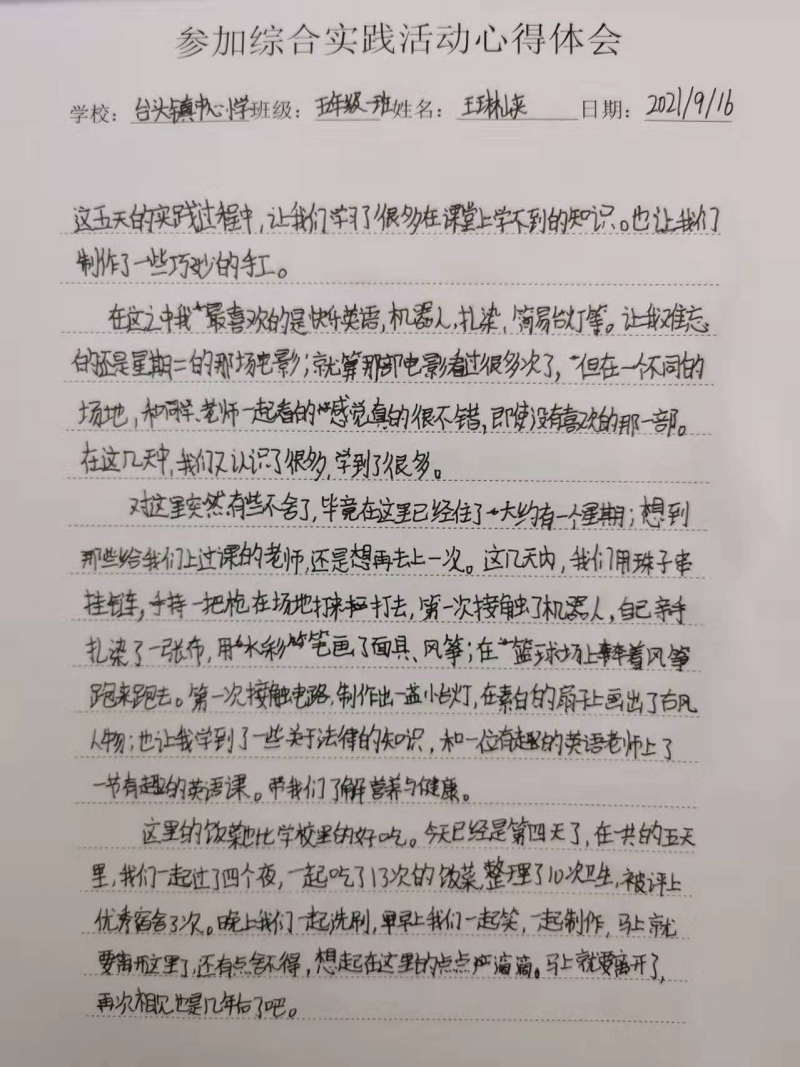 参加综合实践活动心得体会
学校：台头镇中心小学班级：五年级一班姓名：王琳 日期：2021/9/16
这五天的实践过程中，让我们学习了很多在课堂上学不到的知识。也让我们
制作了一些巧妙的手工。
在这之中我最喜欢的是快乐英语，机器人，扎染，简易台灯等。让我难忘
的还是星期二的那场电影；就算那部电影看过很多次了，但在一个不同的
场地，和同学、老师一起看的感觉真的很不错，即使没有喜欢的那一部。
在这几天中，我们又认识了很多，学到了很多。
对这里突然有些不舍了，毕竟在这里已经住了大约有一个星期；想到
那些给我们上过课的老师，还是想再去上一次。这几天内，我们用珠子串
挂链，手持一把枪在场地打来打去，第一次接触了机器人，自己亲手
扎染了一张布，用水彩笔画了面具、风筝；在篮球场上牵着风筝
跑来跑去。第一次接触电路，制作出一盏小台灯，在素白的扇子上画出了古风
人物；也让我学到了一些关于法律的知识，和一位有趣的英语老师上了
一节有趣的英语课。带我们了解营养与健康。
这里的饭菜也比学校里的好吃。今天已经是第四天了，在一共的五天
里，我们一起过了四个夜，一起吃了13次的饭菜，整理了10次卫生，被评上
优秀宿舍3次。晚上我们一起洗刷，早早上我们一起笑，一起制作，马上就
要离开这里了，还有点舍不得，想起在这里的点点滴滴。马上就要离开了，
再次相见也是几年后了吧。